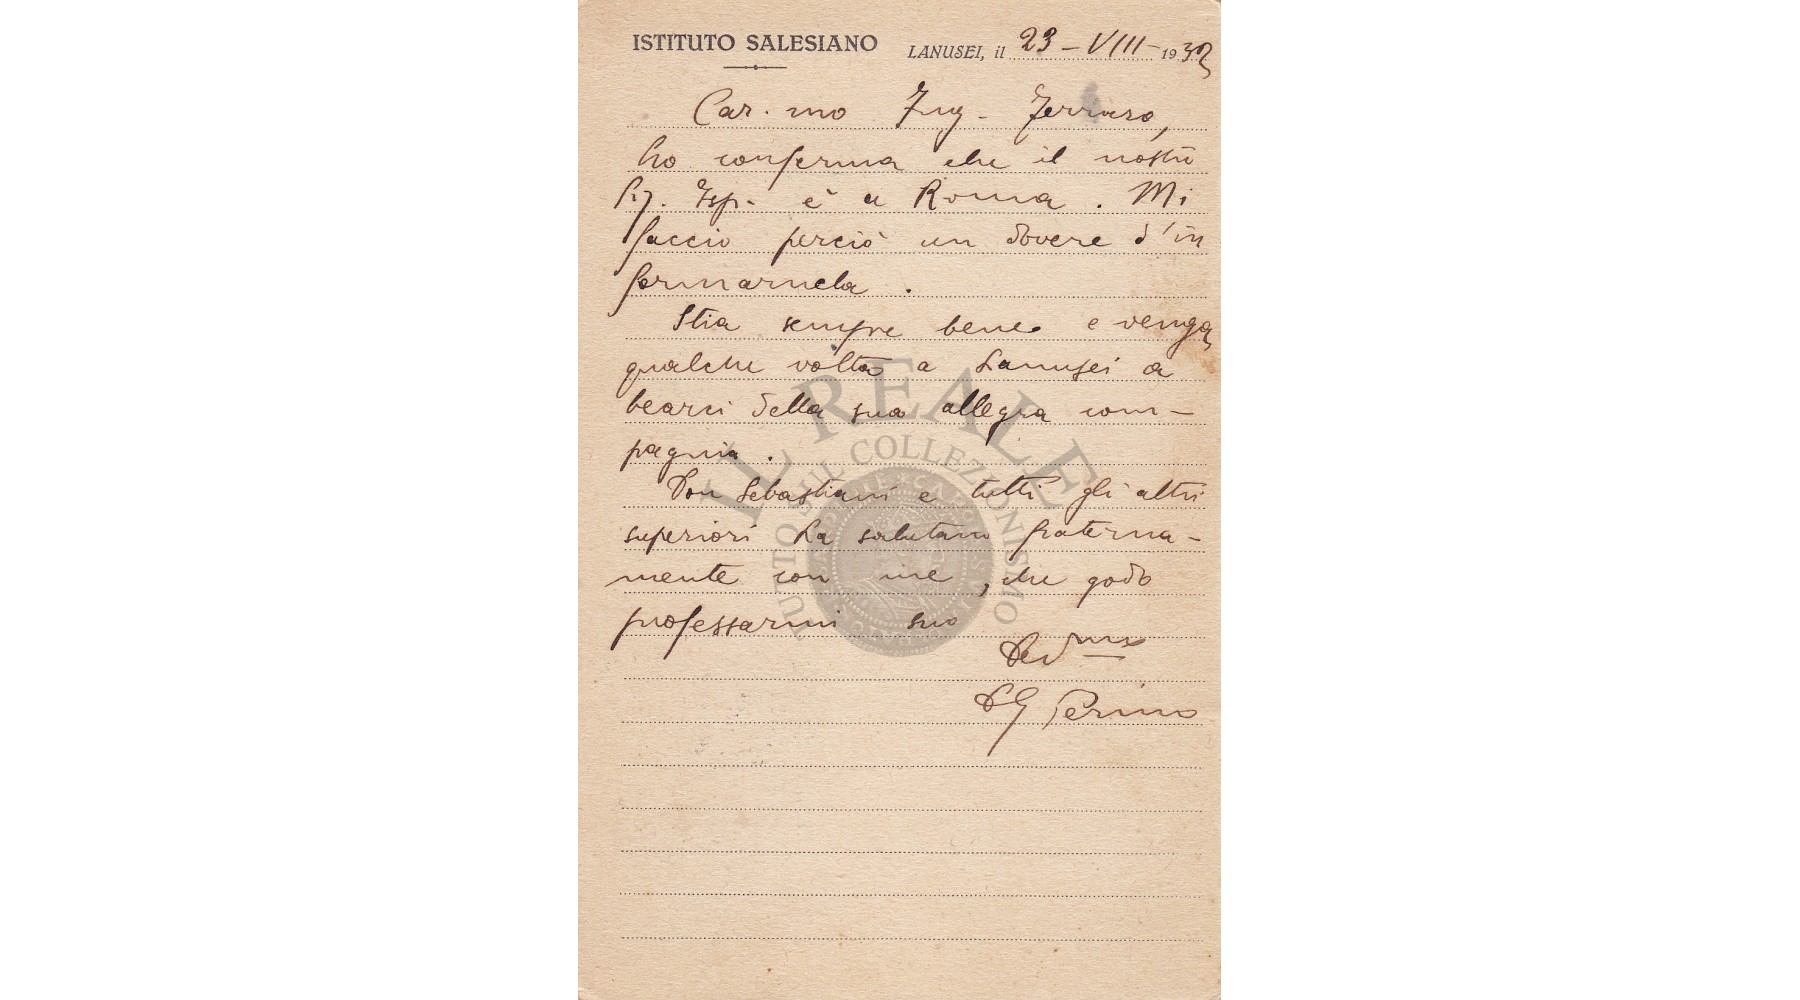 ISTITUTO SALESIANO
LANUSEI, il 23 - VIII - 1932
Car.mo Ing. Ferraro,
ho conferma che il nostro
Sig. Isp. è a Roma. Mi
faccio perciò un dovere d'in
formarnela.
Stia sempre bene e venga
qualche volta a Lanusei a
bearci della sua allegra com-
pagnia.
Don Sebastiani e tutti gli altri
superiori La salutano fraterna-
mente con me, che godo
professarmi suo
Dev.mo
D G Perino
IL REALE
TUTTO SUL COLLEZIONISMO